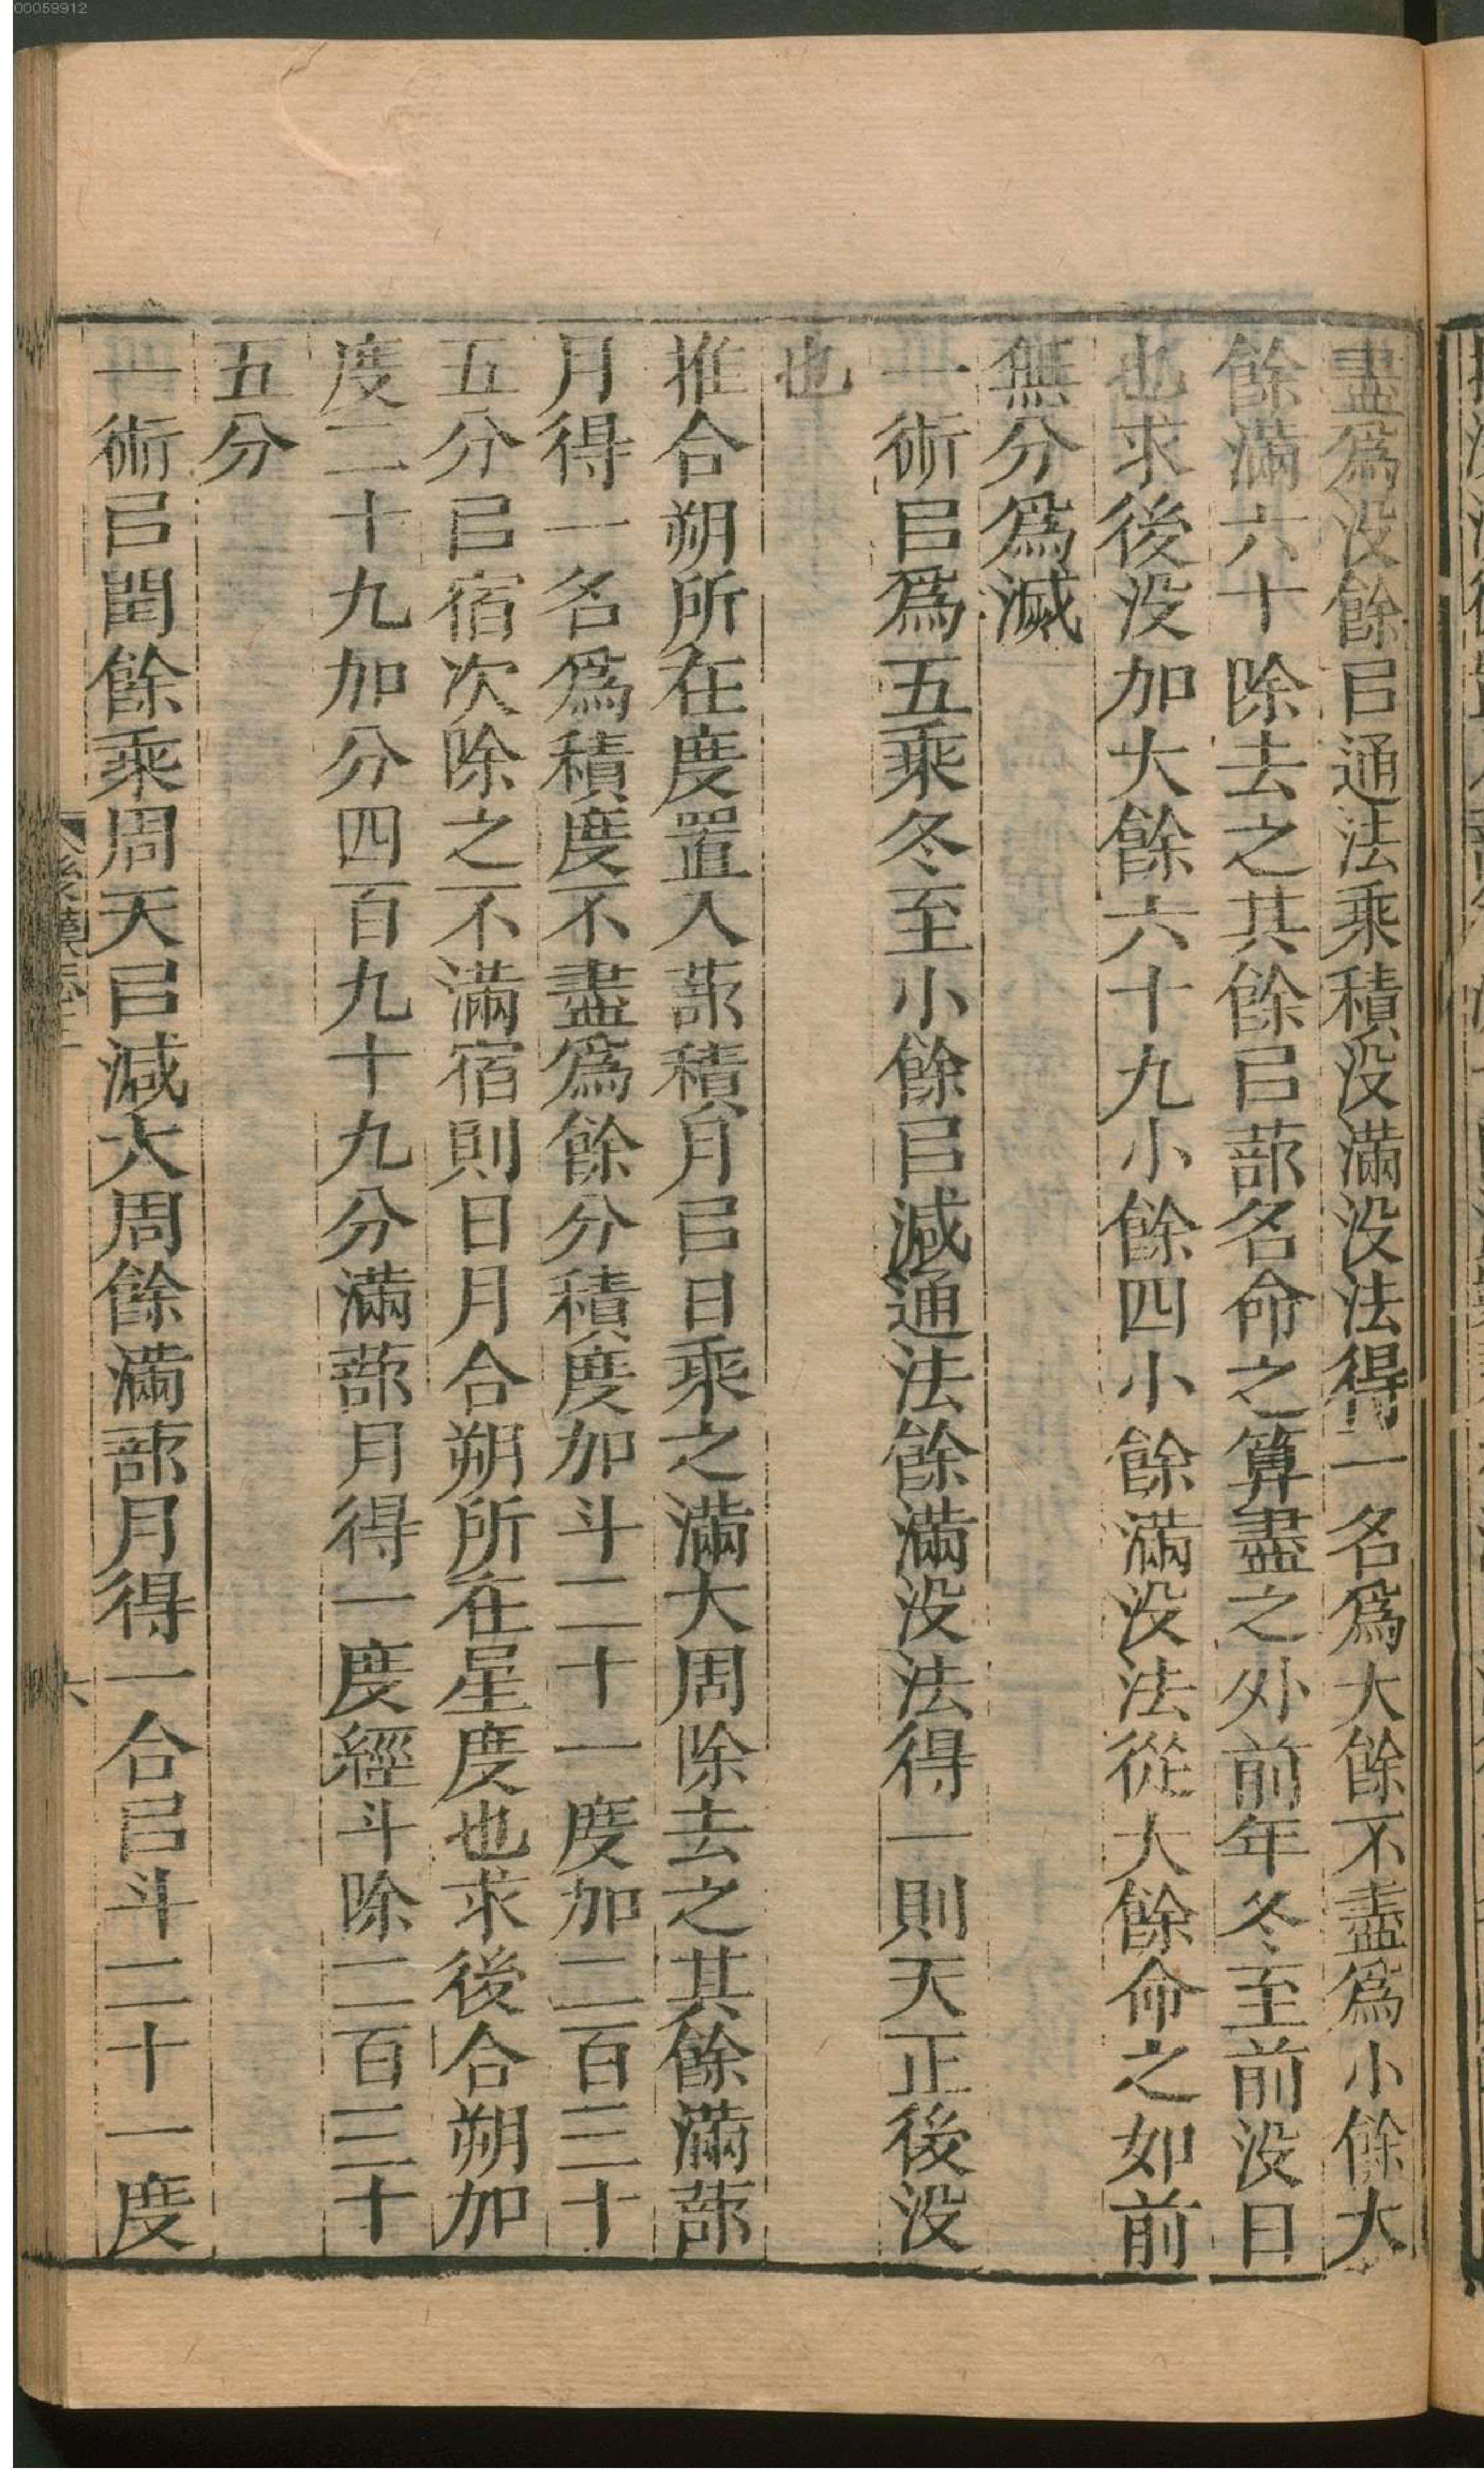 00059912
盡爲没餘㠯通法乘積没滿没法得一名爲大餘不盡爲小餘大
餘滿六十除去之其餘㠯蔀名命之算盡之外前年冬至前没日
也求後没加大餘六十九小餘四小餘滿没法從大餘命之如前
無分爲滅
一術㠯爲五乘冬至小餘㠯減通法餘滿没法得一則天正後没
也
推合朔所在度置入蔀積月㠯日乘之滿大周除去之其餘滿蔀
月得一名爲積度不盡爲餘分積度加斗二十一度加二百三十
五分㠯宿次除之不滿宿則日月合朔所在星度也求後合朔加
度二十九加分四百九十九分滿蔀月得一度經斗除二百三十
五分
一術㠯閏餘乘周天㠯減大周餘滿蔀月得一合㠯斗二十一度
六